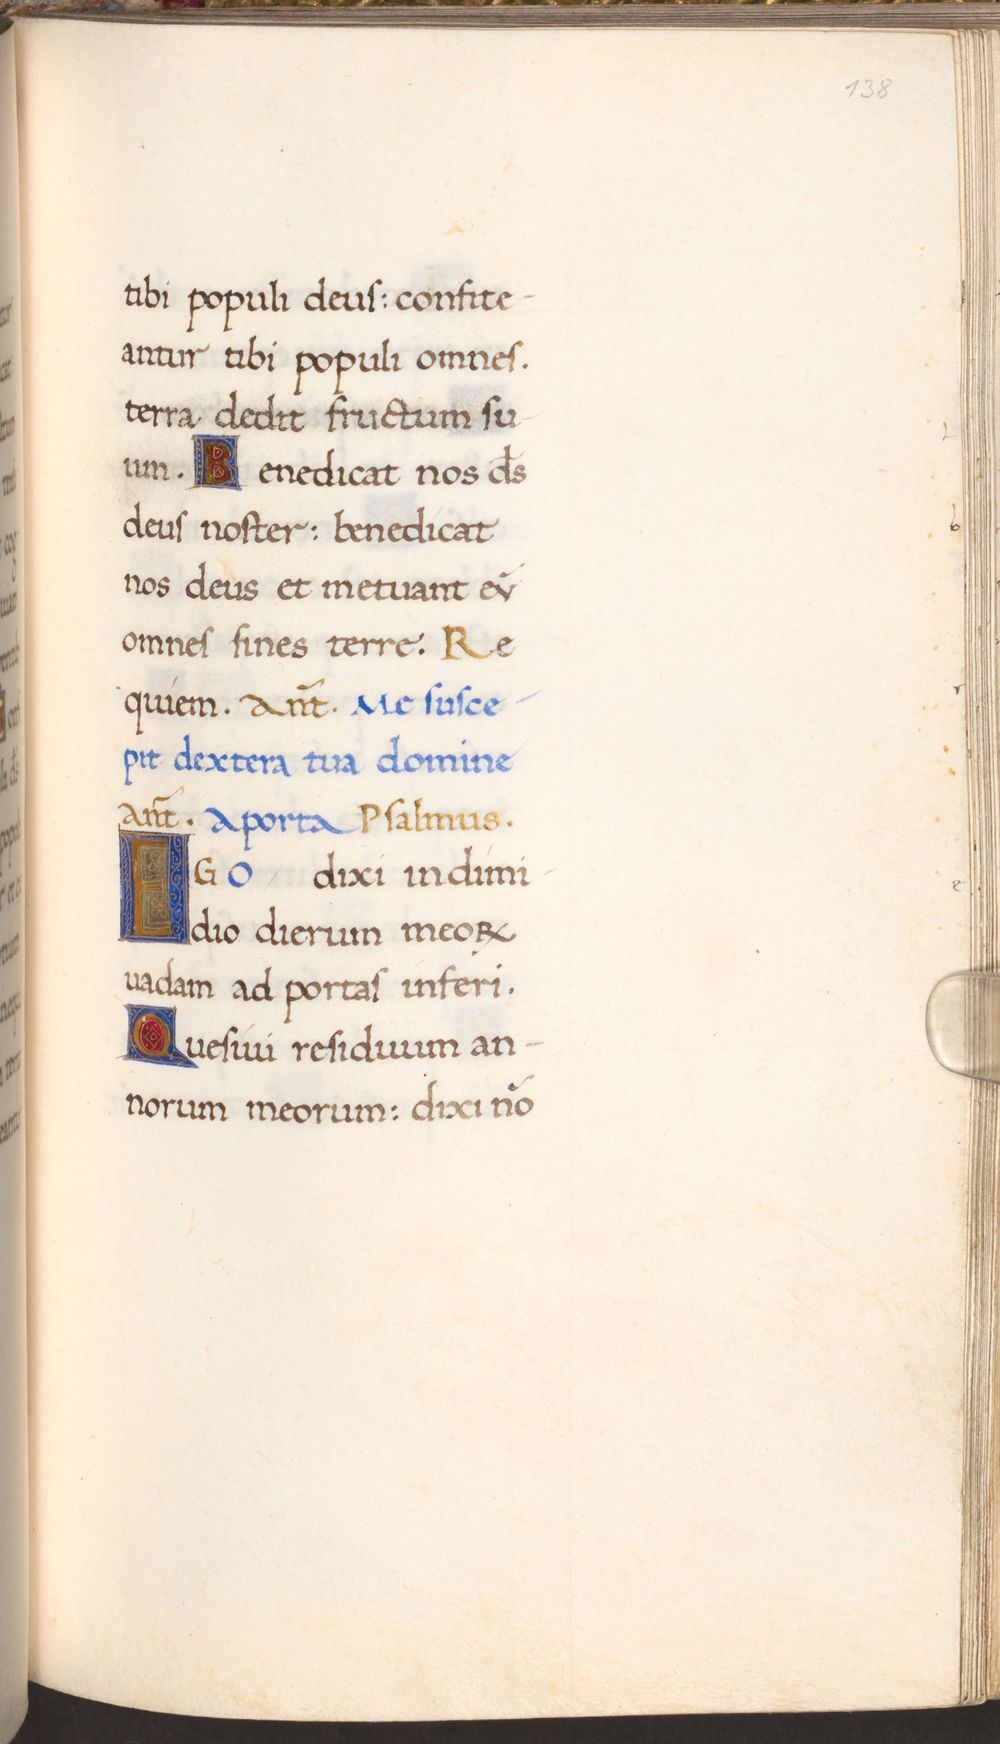 138
tibi populi deus: confite-
antur tibi populi omnes.
terra dedit fructum su
um. Benedicat nos ds̄
deus noster: benedicat
nos deus et metuant eū
omnes fines terre. Re
quiem. Ant̃. Me susce-
pit dextera tua domine
Ant̃. A porta Psalmus.
EGO dixi in dimi-
dio dierum meoꝝ
uadam ad portas inferi.
Quesiui residuum an-
norum meorum: dixi nō